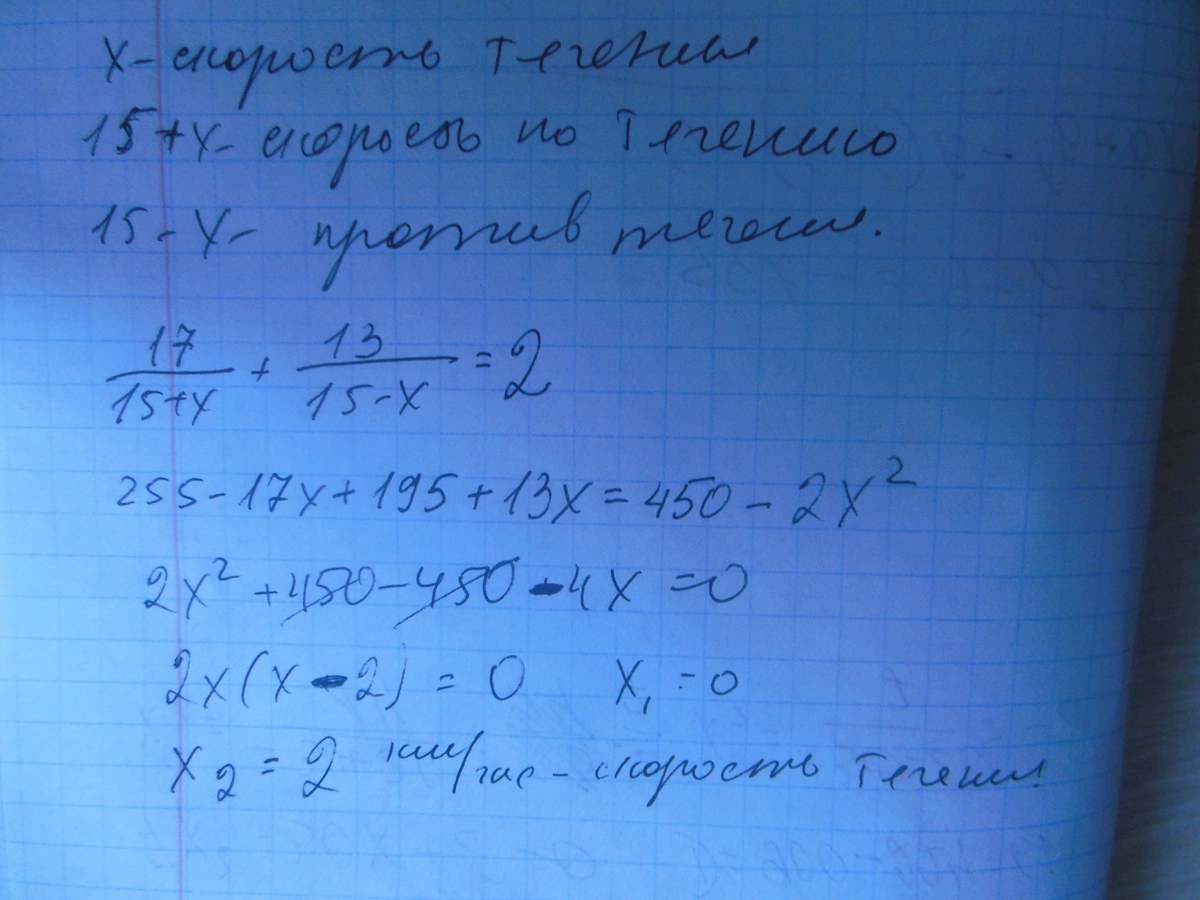 x - скорость течения
15+x - скорость по течению
15-x - против течения.
17/(15+x) + 13/(15-x) = 2
255-17x+195+13x=450-2x²
2x²+450-450-4x=0
2x(x-2)=0 x₁=0
x₂=2 км/час - скорость течения